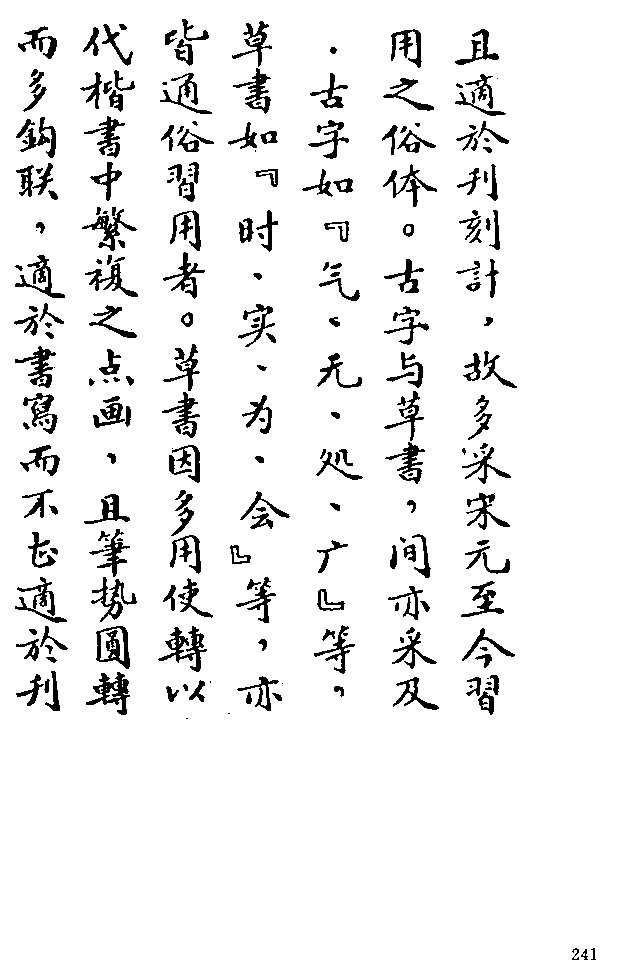 且適於刊刻計，故多采宋元至今習
用之俗体。古字与草書，间亦采及
．古字如『气、无、处、广』等，
草書如『时、实、为、会』等，亦
皆通俗習用者。草書因多用使轉以
代楷書中繁複之点画，且筆势圓轉
而多鈎联，適於書寫而不甚適於刊
241